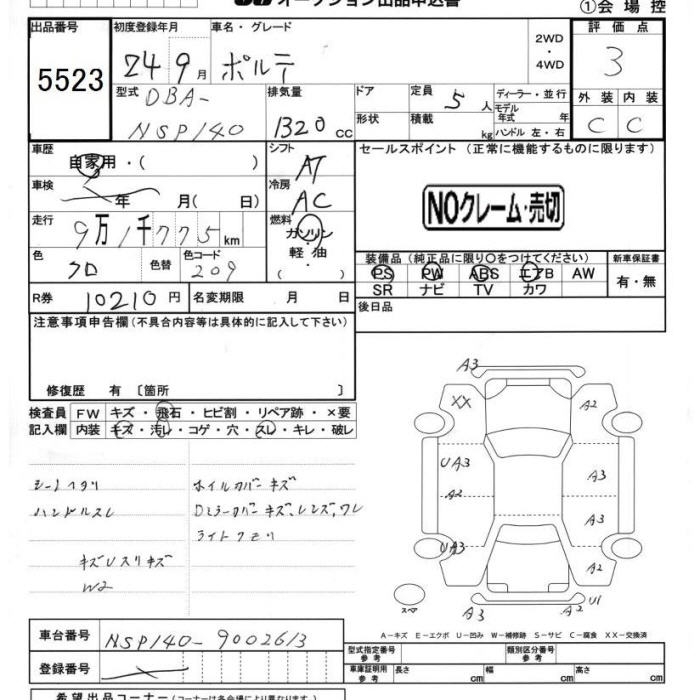 オークション出品申込書
①会場控
出品番号 初度登録年月 車名・グレード 2WD 評価点
5523 24 9月 ポルテ ・4WD 3
型式 排気量 ドア 定員 ディーラー・並行 外装 内装
DBA- 5人 モデル年式 年
NSP140 1320cc 形状 積載 kg ハンドル 左・右 C C
車歴 シフト セールスポイント (正常に機能するものに限ります)
自家用・( ) AT
車検 冷房
年 月( 日) AC NOクレーム・売切
走行 燃料
9万1千775km ガソリン
色 色替 色コード 軽・油 装備品(純正品に限り○をつけてください) 新車保証書
クロ 209 ( ・ ) PS PW ABS エアB AW 有・無
SR ナビ TV カワ
R券 10210円 名変期限 月 日 後日品
注意事項申告欄(不具合内容等は具体的に記入して下さい)
修復歴 有 〔箇所 〕
検査員 FW キズ・飛石・ヒビ割・リペア跡・×要
記入欄 内装 キズ・汚レ・コゲ・穴・スレ・キレ・破レ
シートヘタリ ホイルカバーキズ
ハンドルスレ Dミラーカバーキズ、レンズ、ワレ
ライトクモリ
キズUスリキズ
W2
A3
XX A2
UA3 A3
A2 A3
UA3 A2
スペア A3 A2 U1
A-キズ E-エクボ U-凹み W-補修跡 S-サビ C-腐食 XX-交換済
車台番号 NSP140-9002613
型式指定番号 参考 類別区分番号 参考
登録番号 車庫証明用 参考 長さ cm 幅 cm 高さ cm
希望出品コーナー(コーナーは各会場により異なります。)